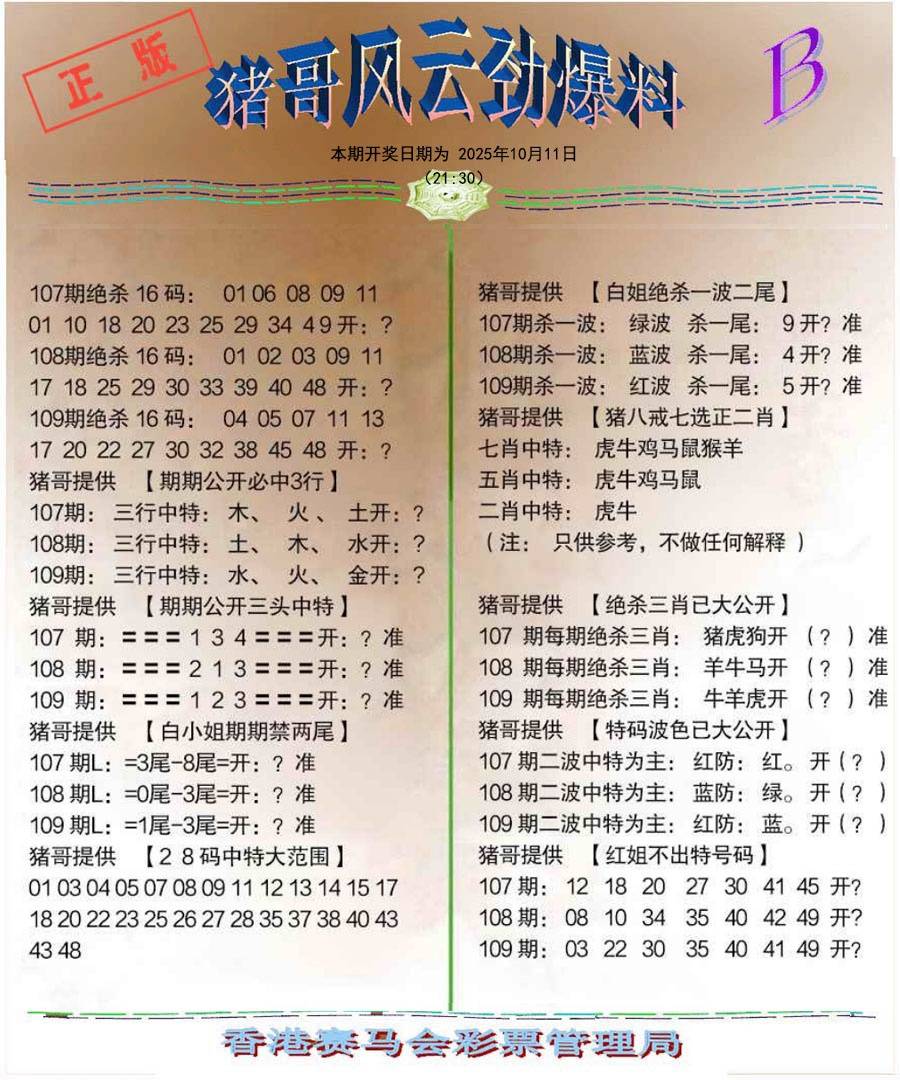 正版
猪哥风云劲爆料
B
本期开奖日期为 2025年10月11日
(21:30)
107期绝杀 16 码: 01 06 08 09 11
01 10 18 20 23 25 29 34 49 开: ?
108期绝杀 16 码: 01 02 03 09 11
17 18 25 29 30 33 39 40 48 开: ?
109期绝杀 16 码: 04 05 07 11 13
17 20 22 27 30 32 38 45 48 开: ?
猪哥提供 【期期公开必中3行】
107期: 三行中特: 木、 火、 土开: ?
108期: 三行中特: 土、 木、 水开: ?
109期: 三行中特: 水、 火、 金开: ?
猪哥提供 【期期公开三头中特】
107 期: === 1 3 4 ===开: ? 准
108 期: === 2 1 3 ===开: ? 准
109 期: === 1 2 3 ===开: ? 准
猪哥提供 【白小姐期期禁两尾】
107 期L: =3尾-8尾=开: ? 准
108 期L: =0尾-3尾=开: ? 准
109 期L: =1尾-3尾=开: ? 准
猪哥提供 【28码中特大范围】
01 03 04 05 07 08 09 11 12 13 14 15 17
18 20 22 23 25 26 27 28 35 37 38 40 43
43 48
猪哥提供 【白姐绝杀一波二尾】
107期杀一波: 绿波 杀一尾: 9开? 准
108期杀一波: 蓝波 杀一尾: 4开? 准
109期杀一波: 红波 杀一尾: 5开? 准
猪哥提供 【猪八戒七选正二肖】
七肖中特: 虎牛鸡马鼠猴羊
五肖中特: 虎牛鸡马鼠
二肖中特: 虎牛
(注: 只供参考，不做任何解释 )
猪哥提供 【绝杀三肖已大公开】
107 期每期绝杀三肖: 猪虎狗开 (?)准
108 期每期绝杀三肖: 羊牛马开 (?)准
109 期每期绝杀三肖: 牛羊虎开 (?)准
猪哥提供 【特码波色已大公开】
107 期二波中特为主: 红防: 红。 开(?)
108 期二波中特为主: 蓝防: 绿。 开(?)
109 期二波中特为主: 红防: 蓝。 开(?)
猪哥提供 【红姐不出特号码】
107 期: 12 18 20 27 30 41 45 开?
108 期: 08 10 34 35 40 42 49 开?
109 期: 03 22 30 35 40 41 49 开?
香港赛马会彩票管理局